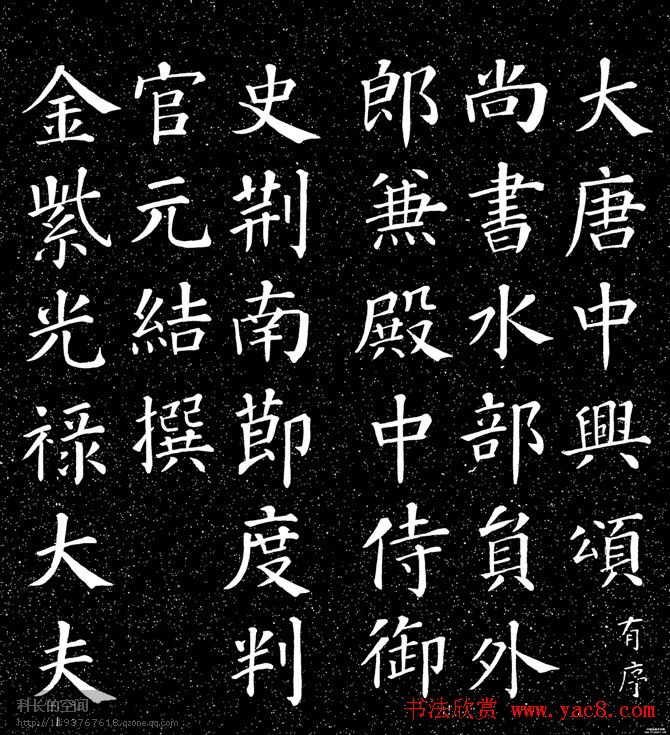 大唐中興頌有序
尚書水部員外
郎兼殿中侍御
史荆南節度判
官元結撰
金紫光禄大夫
科长的空间
http://1193767618.qzone.qq.com
书法欣赏 www.yac8.com